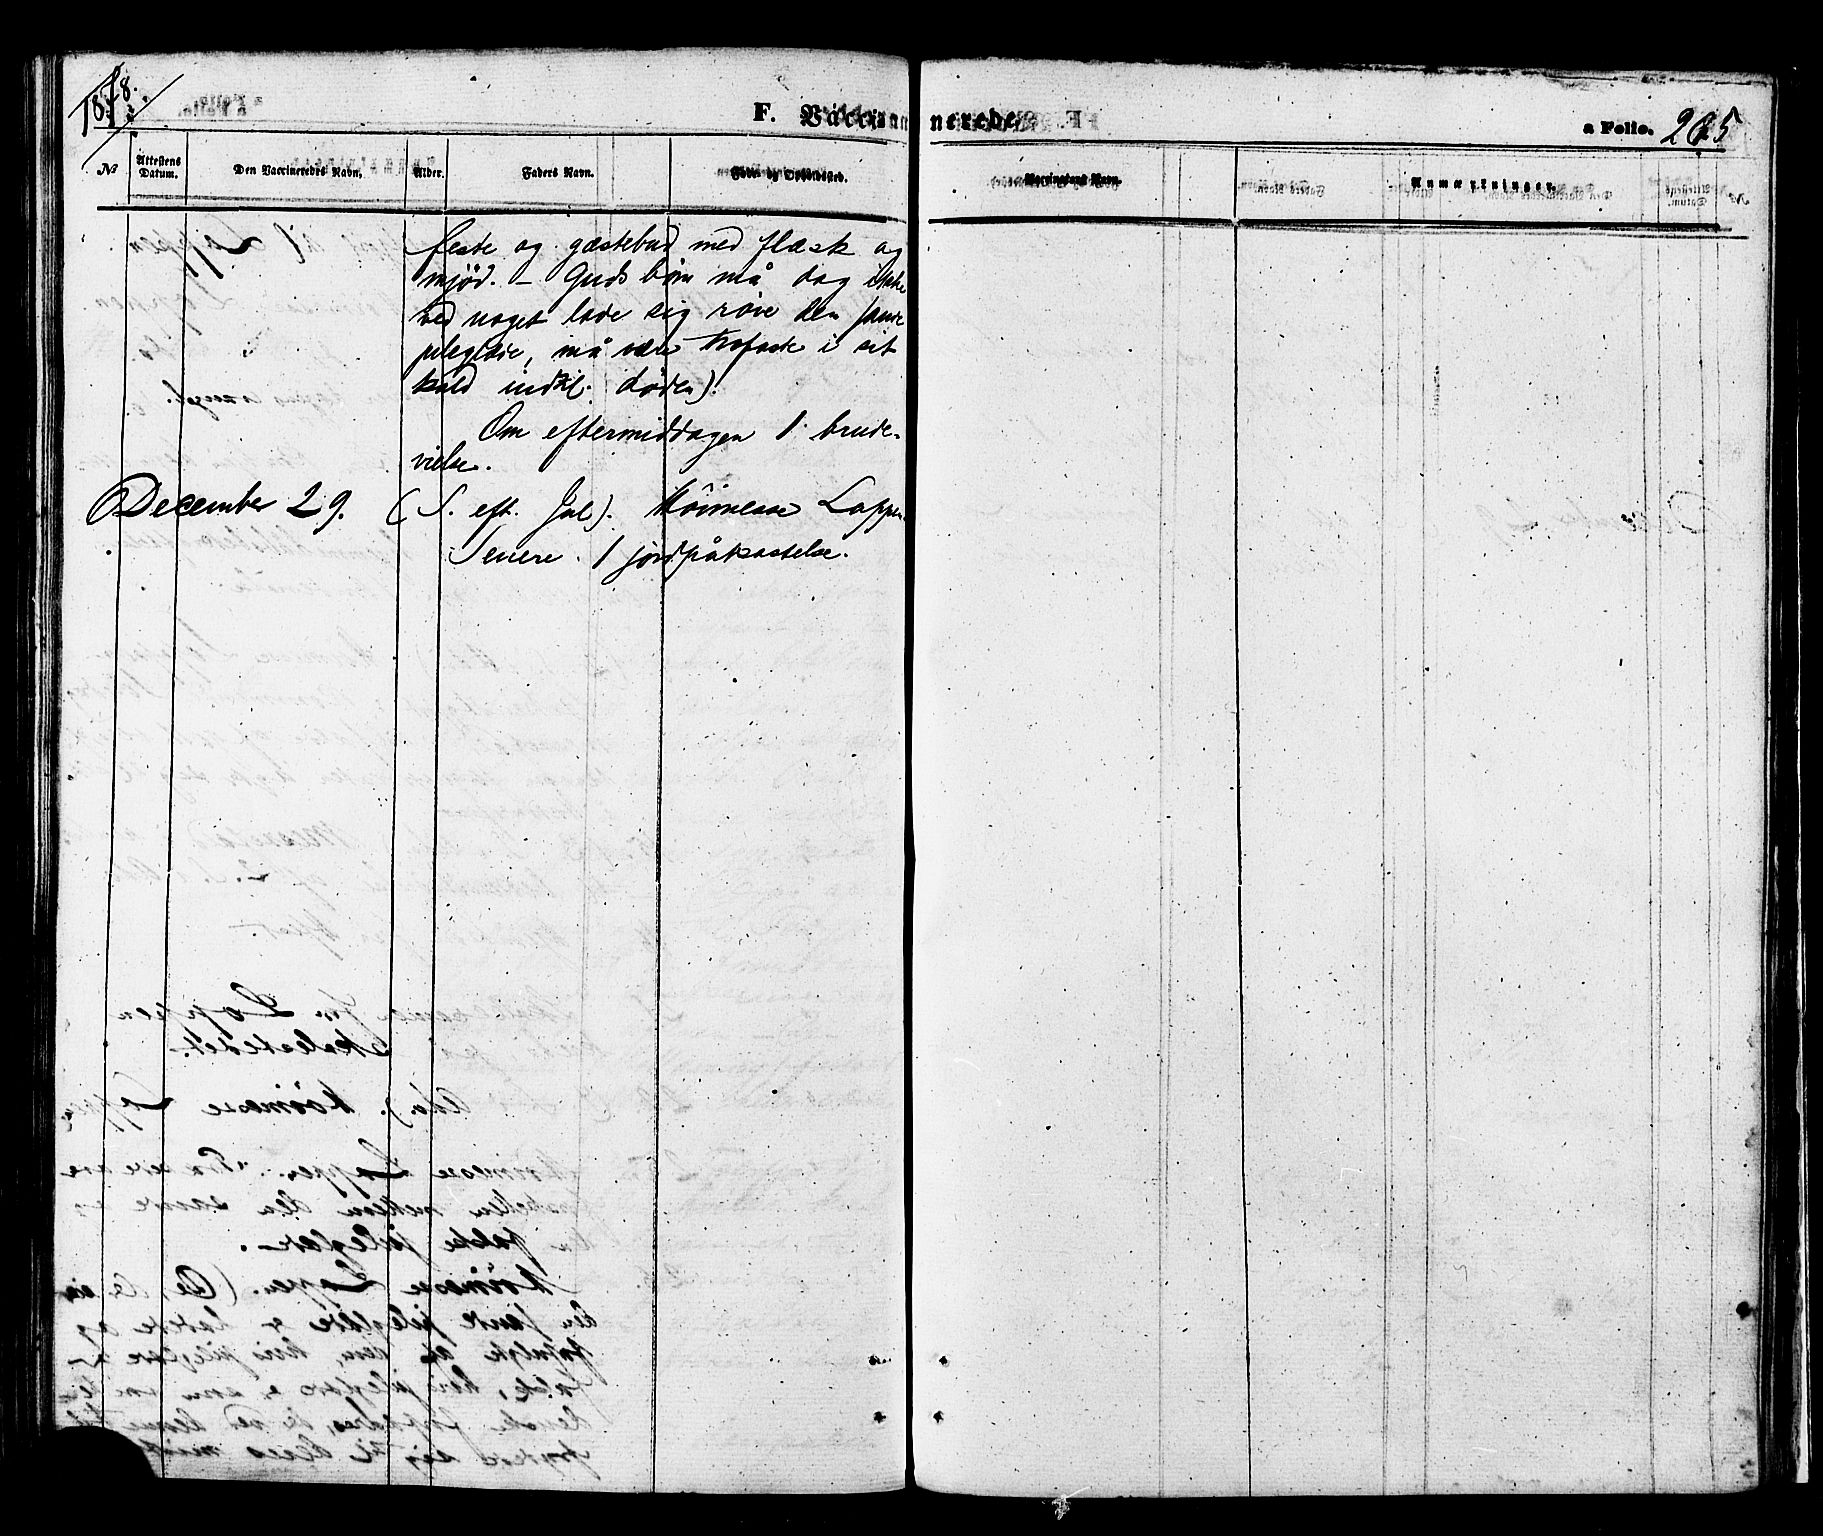 1878.
F. Vaccinerede.
a Folio. 265
No
Attestens Datum.
Den Vaccineredes Navn.
Alder.
Faders Navn.
Føde og Opholdssted.
Vaccinateurs Navn.
Anmærkninger.
feste og gæstebud med flæsk og
mjød. – Guds börn må dog ikke
ved noget lade sig röve den sande
juleglæde, må være trofaste i sit
kald indtil døden).
Om eftermiddagen 1 brude-
vielse.
December 29. (S. eft. Jul). Höimesse Loppen.
Senere 1 jordpåkastelse.